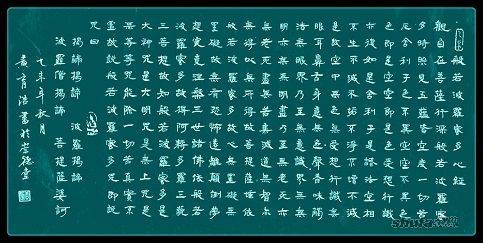 般若波羅蜜多心經
觀自在菩薩行深般若波羅蜜
多時照見五蘊皆空度一切苦
厄舍利子色不異空空不異色
色即是空空即是色受想行識
亦復如是舍利子是諸法空相
不生不滅不垢不淨不增不減
是故空中無色無受想行識無
眼耳鼻舌身意無色聲香味觸
法無眼界乃至無意識界無無
明亦無無明盡乃至無老死亦
無老死盡無苦集滅道無智亦
無得以無所得故菩提薩埵依
般若波羅蜜多故心無罣礙無
罣礙故無有恐怖遠離顛倒夢
想究竟涅槃三世諸佛依般若
波羅蜜多故得阿耨多羅三藐
三菩提故知般若波羅蜜多是
大神咒是大明咒是無上咒是
無等等咒能除一切苦真實不
虛故說般若波羅蜜多咒即說
咒曰
揭諦揭諦 波羅揭諦
波羅僧揭諦 菩提薩婆訶
乙未年秋月
書於